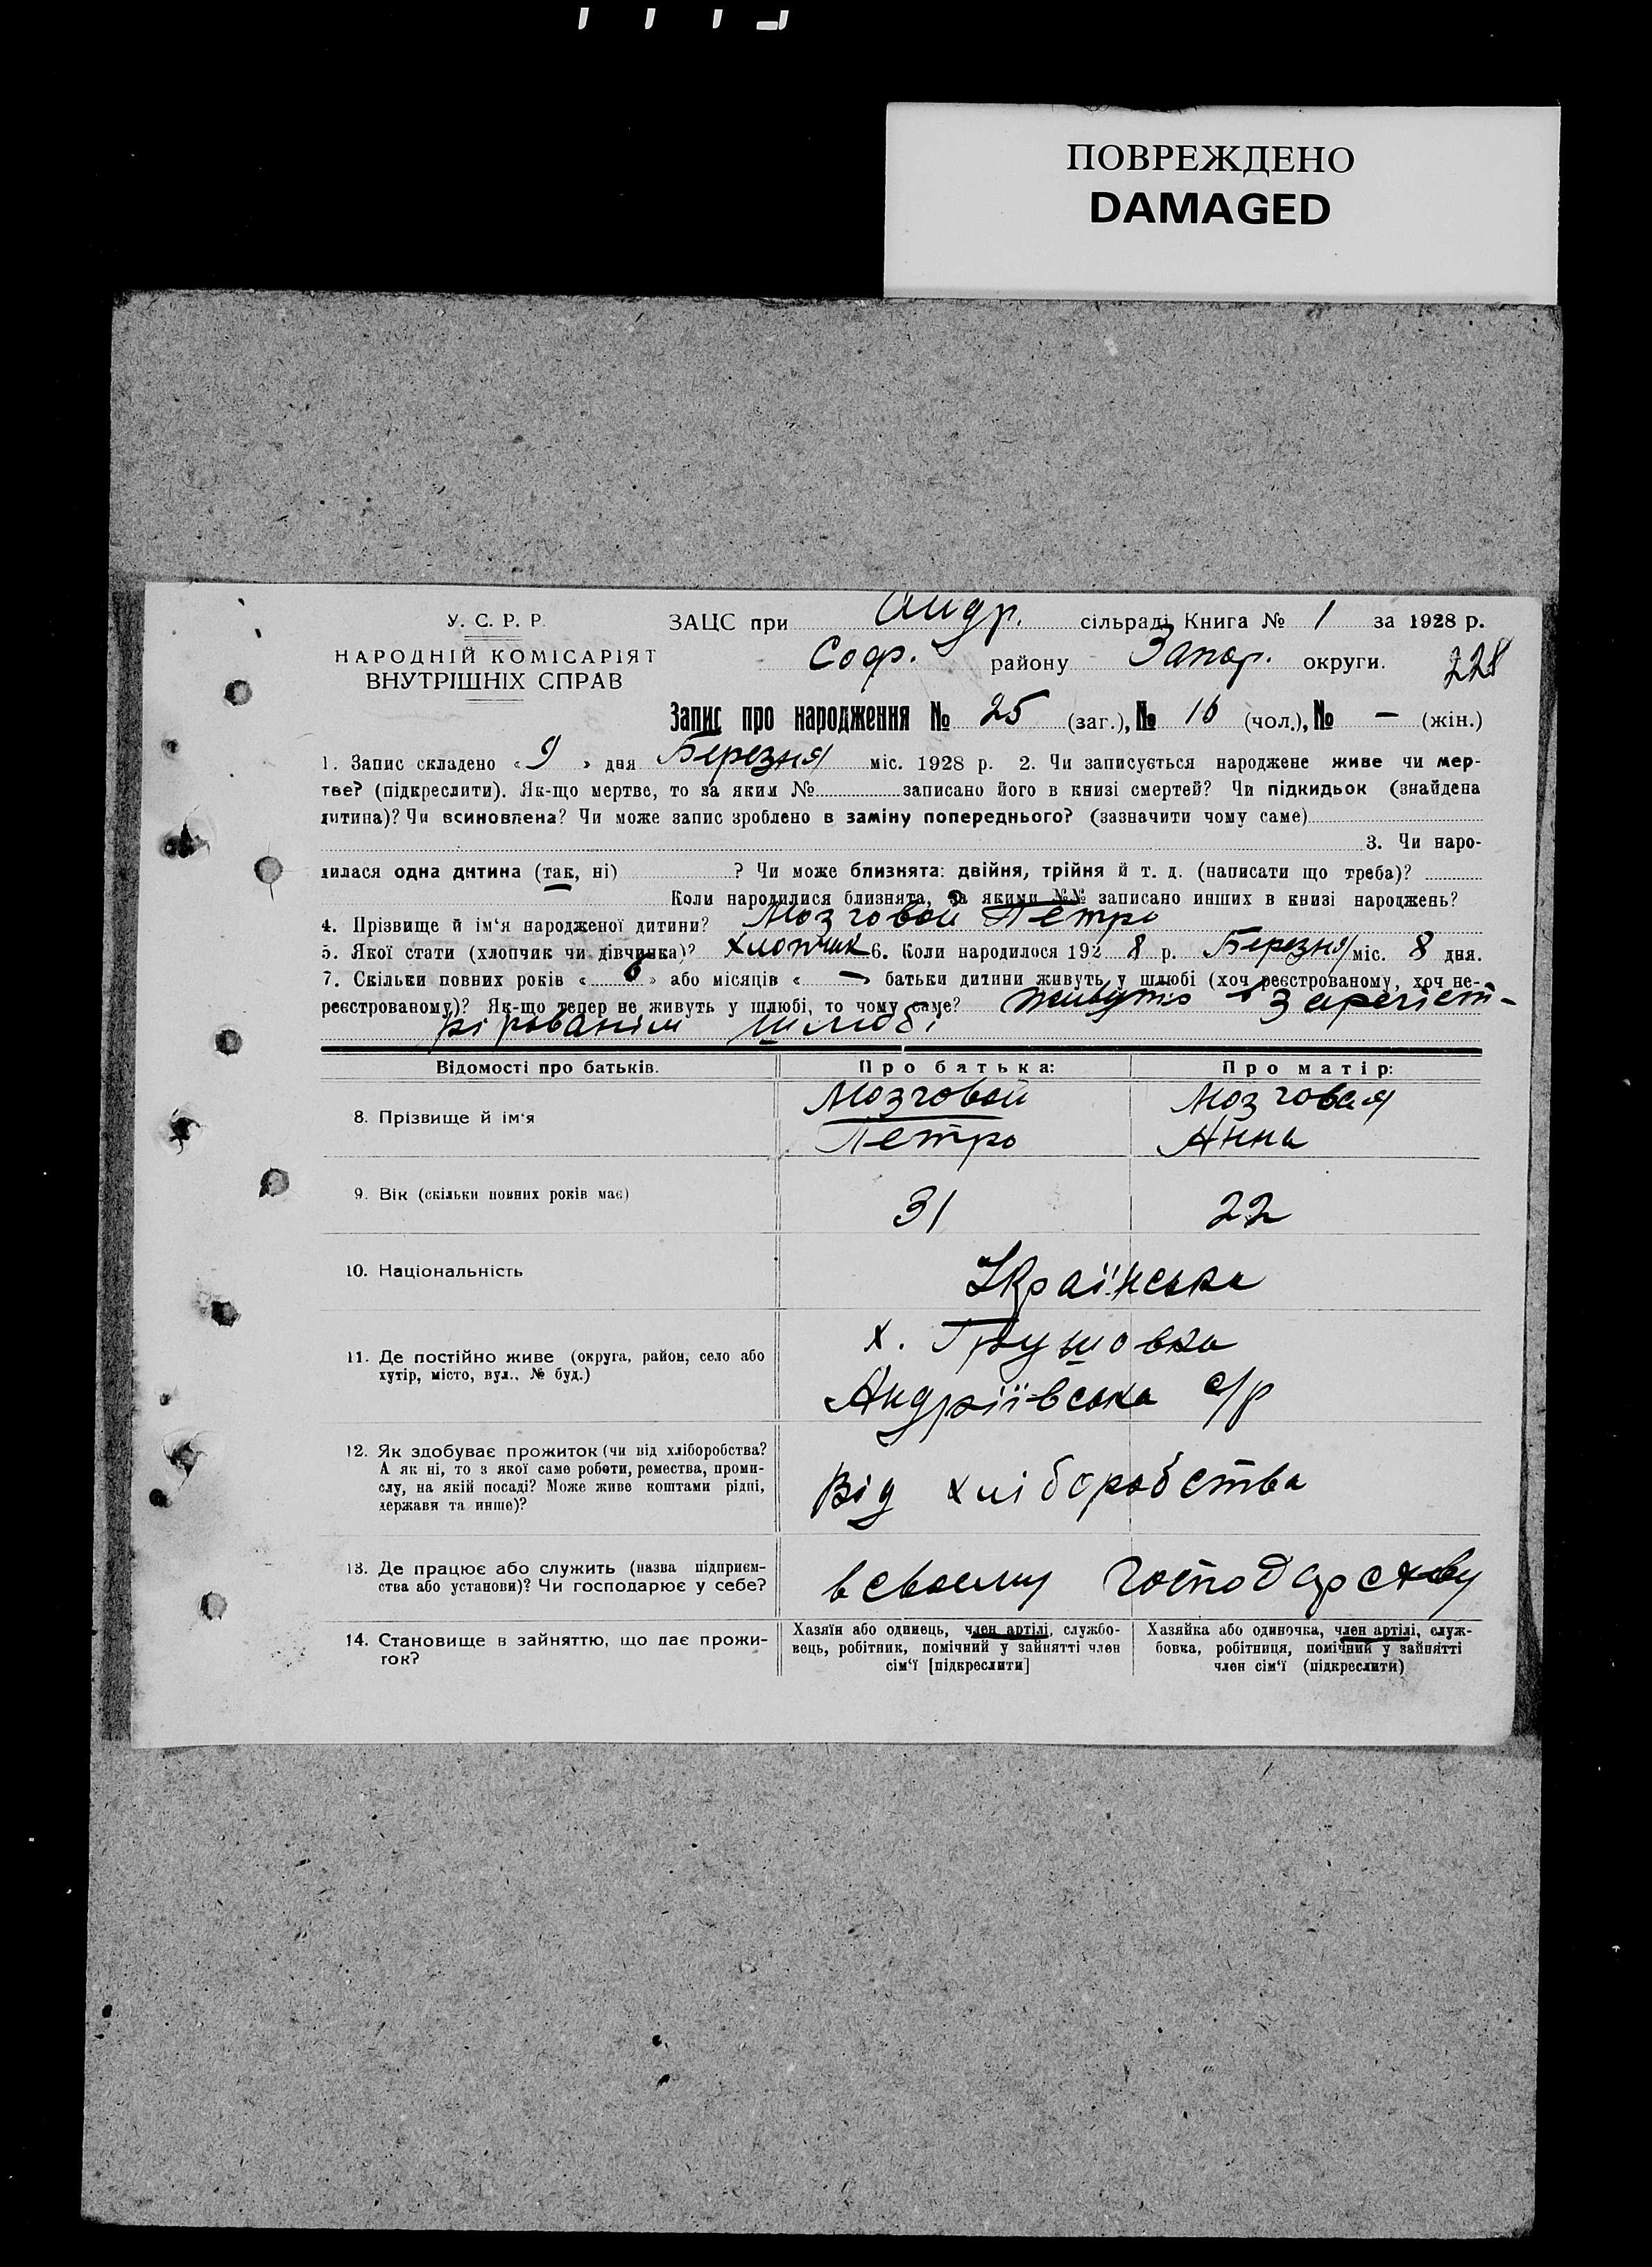 ПОВРЕЖДЕНО
DAMAGED
У. С. Р. Р.
НАРОДНІЙ КОМІСАРІЯТ
ВНУТРІШНІХ СПРАВ
ЗАЦС при Андр. сільраді Книга № 1 за 1928 р.
Соф. району Запор. округи. 228
Запис про народження № 25 (заг.), № 16 (чол.), № — (жін.)
1. Запис складено « 9 » дня Березня міс. 1928 р. 2. Чи записується народжене живе чи мер-
тве? (підкреслити). Як-що мертве, то за яким № записано його в книзі смертей? Чи підкидьок (знайдена
дитина)? Чи всиновлена? Чи може запис зроблено в заміну попереднього? (зазначити чому саме)
3. Чи наро-
дилася одна дитина (так, ні) ? Чи може близнята: двійня, трійня й т. д. (написати що треба)?
Коли народилися близнята, за якими №№ записано инших в книзі народжень?
4. Прізвище й ім‘я народженої дитини? Мозговой Петро
5. Якої стати (хлопчик чи дівчинка)? хлопчик 6. Коли народилося 192 8 р. Березня міс. 8 дня.
7. Скільки повних років « 6 » або місяців « — » батьки дитини живуть у шлюбі (хоч реєстрованому, хоч не-
реєстрованому)? Як-що тепер не живуть у шлюбі, то чому саме? живуть в зарегіст-
рірованім шлюбі
Відомості про батьків. Про батька: Про матір:
8. Прізвище й ім‘я Мозговой Мозговая
Петро Анна
9. Вік (скільки повних років має) 31 22
10. Національність Українська
11. Де постійно живе (округа, район, село або х. Грушовка
хутір, місто, вул., № буд.) Андріївська с/р
12. Як здобуває прожиток (чи від хліборобства?
А як ні, то з якої саме роботи, ремества, проми-
слу, на якій посаді? Може живе коштами рідні, Від хліборобства
держави та инше)?
13. Де працює або служить (назва підприєм-
ства або установи)? Чи господарює у себе? в своєму господарству
14. Становище в зайняттю, що дає прожи-
ток?
Хазяїн або одинець, член артілі, службо-
вець, робітник, помічний у зайнятті член
сім‘ї [підкреслити]
Хазяйка або одиночка, член артілі, служ-
бовка, робітниця, помічний у зайнятті
член сім‘ї (підкреслити)